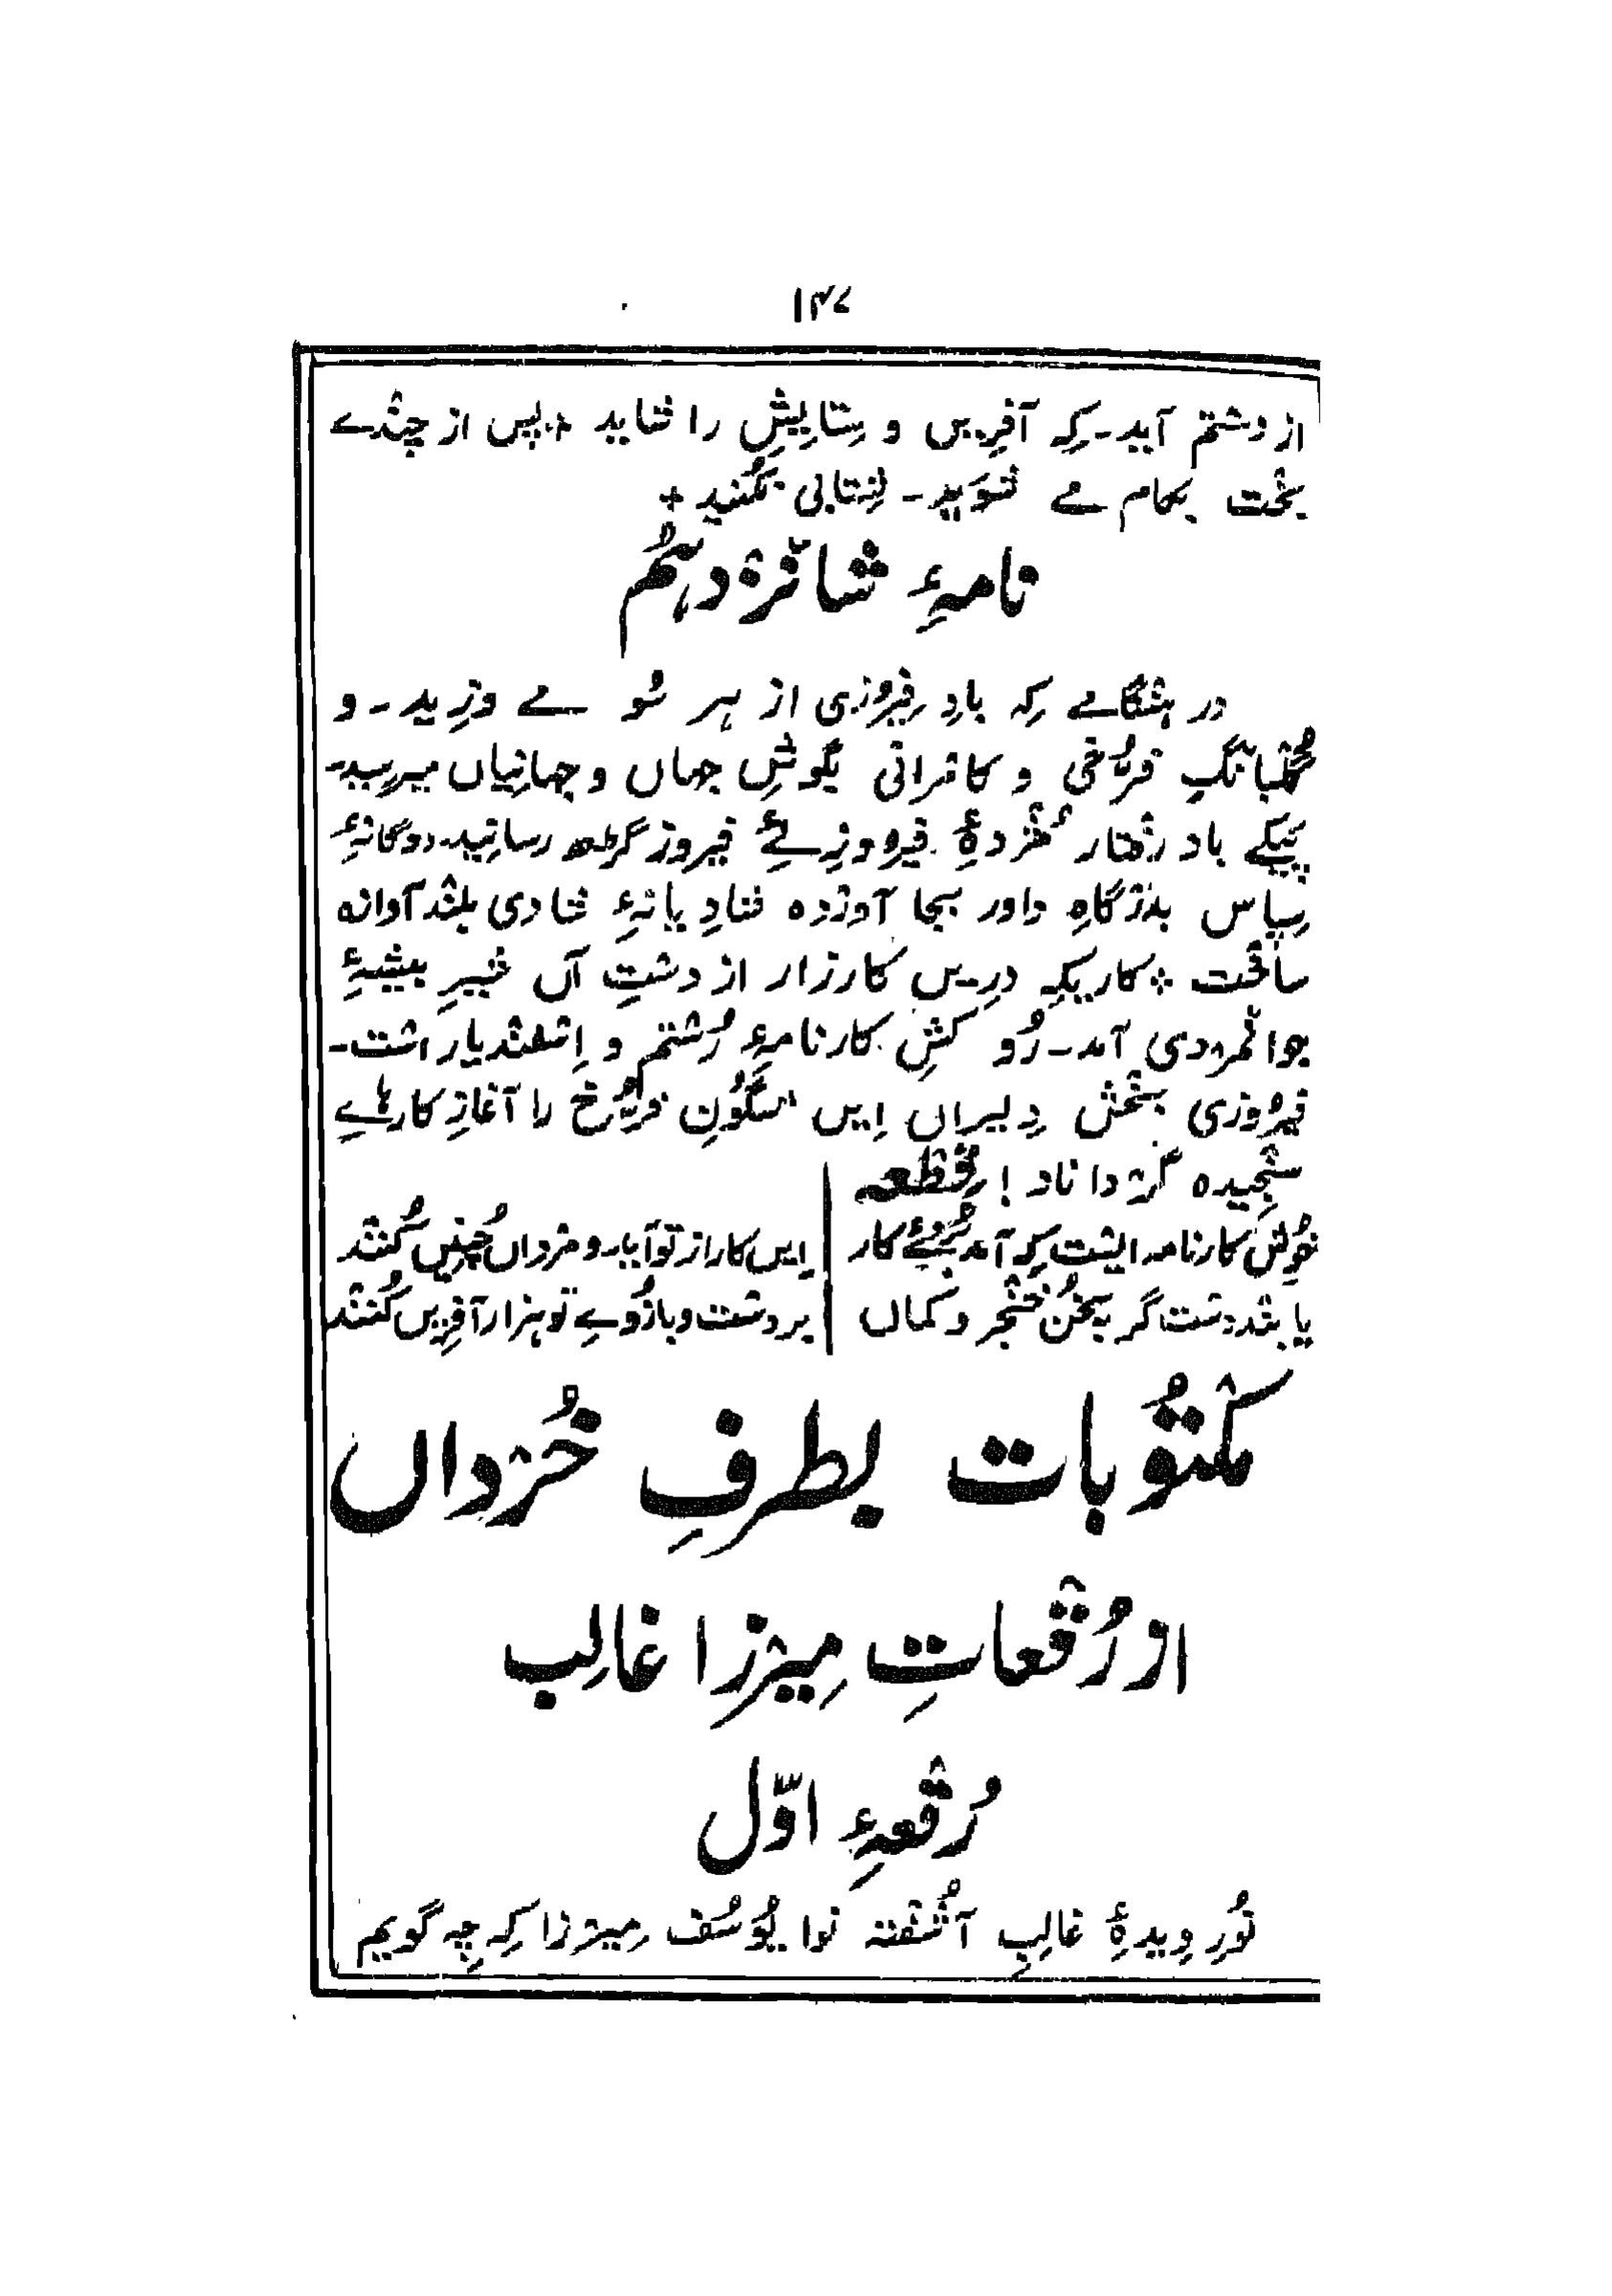 ۱۴۷
از دستم آید۔ کِہ آفرِیں و سِتایِشِ را شاید + پس از چندے
بخت بکام مے شوَید۔ شِتابی مکُنید +
نامہءِ شانزدہُم
در ہنگامے کِہ بادِ فِیروزی از ہر سُو مے وزِید۔ و
گلبانگِ فرُّخی و کامرانی بگوشِ جہاں و جہانِیاں میرسِید۔
پَیکے باد رفتار مُژدۂِ فِیروزئےِ فیروز گڑھ رسانِید۔ دوگانہءِ
سِپاس بدرگاہِ داور بجا آوردہ شادِیانہءِ شادی بلند آوازہ
ساخت ÷ کاریکِہ درِیں کارزار از دستِ آں شیرِ بیشہءِ
جوانمردی آمد۔ رُو کشِ کارنامہءِ رُستم و اِسفندیار است۔
فیرُوزی بخش دِلیراں اِیں شگُونِ فرُّخ را آغازِ کارہاےِ
سنجِیدہ گرداناد! قِطعہ
خوش کارنامہ ایست کِہ آمد برُوئے کار | اِیں کار از تو آید و مرداں چُنِیں کُنند
یا بند دست گر بخُن خنجر و کماں | بر دست و بازُوےِ تو ہزار آفرِیں کُنند
مکتُوبات بطرفِ خُرداں
از رُقعاتِ مِیرزا غالِب
رُقعہءِ اوّل
نُورِ دِیدۂِ غالِبِ آشُفتہ نوا یُوسُف مِیرزا کِہ چِہ گویم